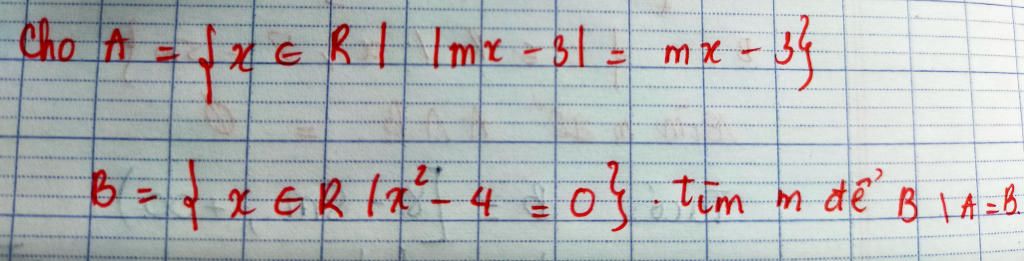 Cho A = { x ∈ R | |mx - 3| = mx - 3}
B = { x ∈ R / x² - 4 = 0}. tìm m để B \ A = B.